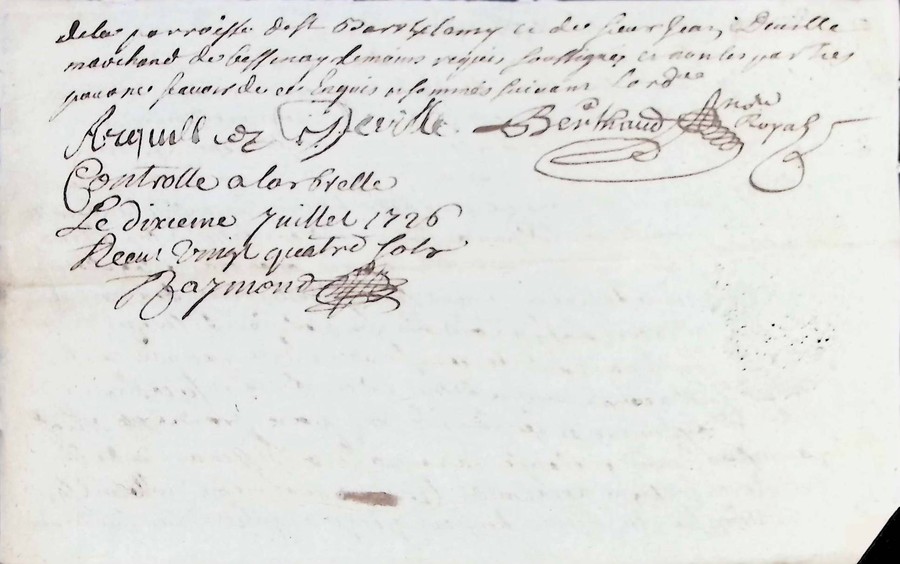 de la parroisse de st Barthelemy et de sieur Jean Deville
marchand de bessenay temoins requis soussignés et non les parties
pour ne scavoir de ce Enquis et sommés suivant lorde
Deville Berthaud nore Royal
Controlle a larbrelle
Le dixieme Juillet 1726
Receu vingt quatre sols
Raymond